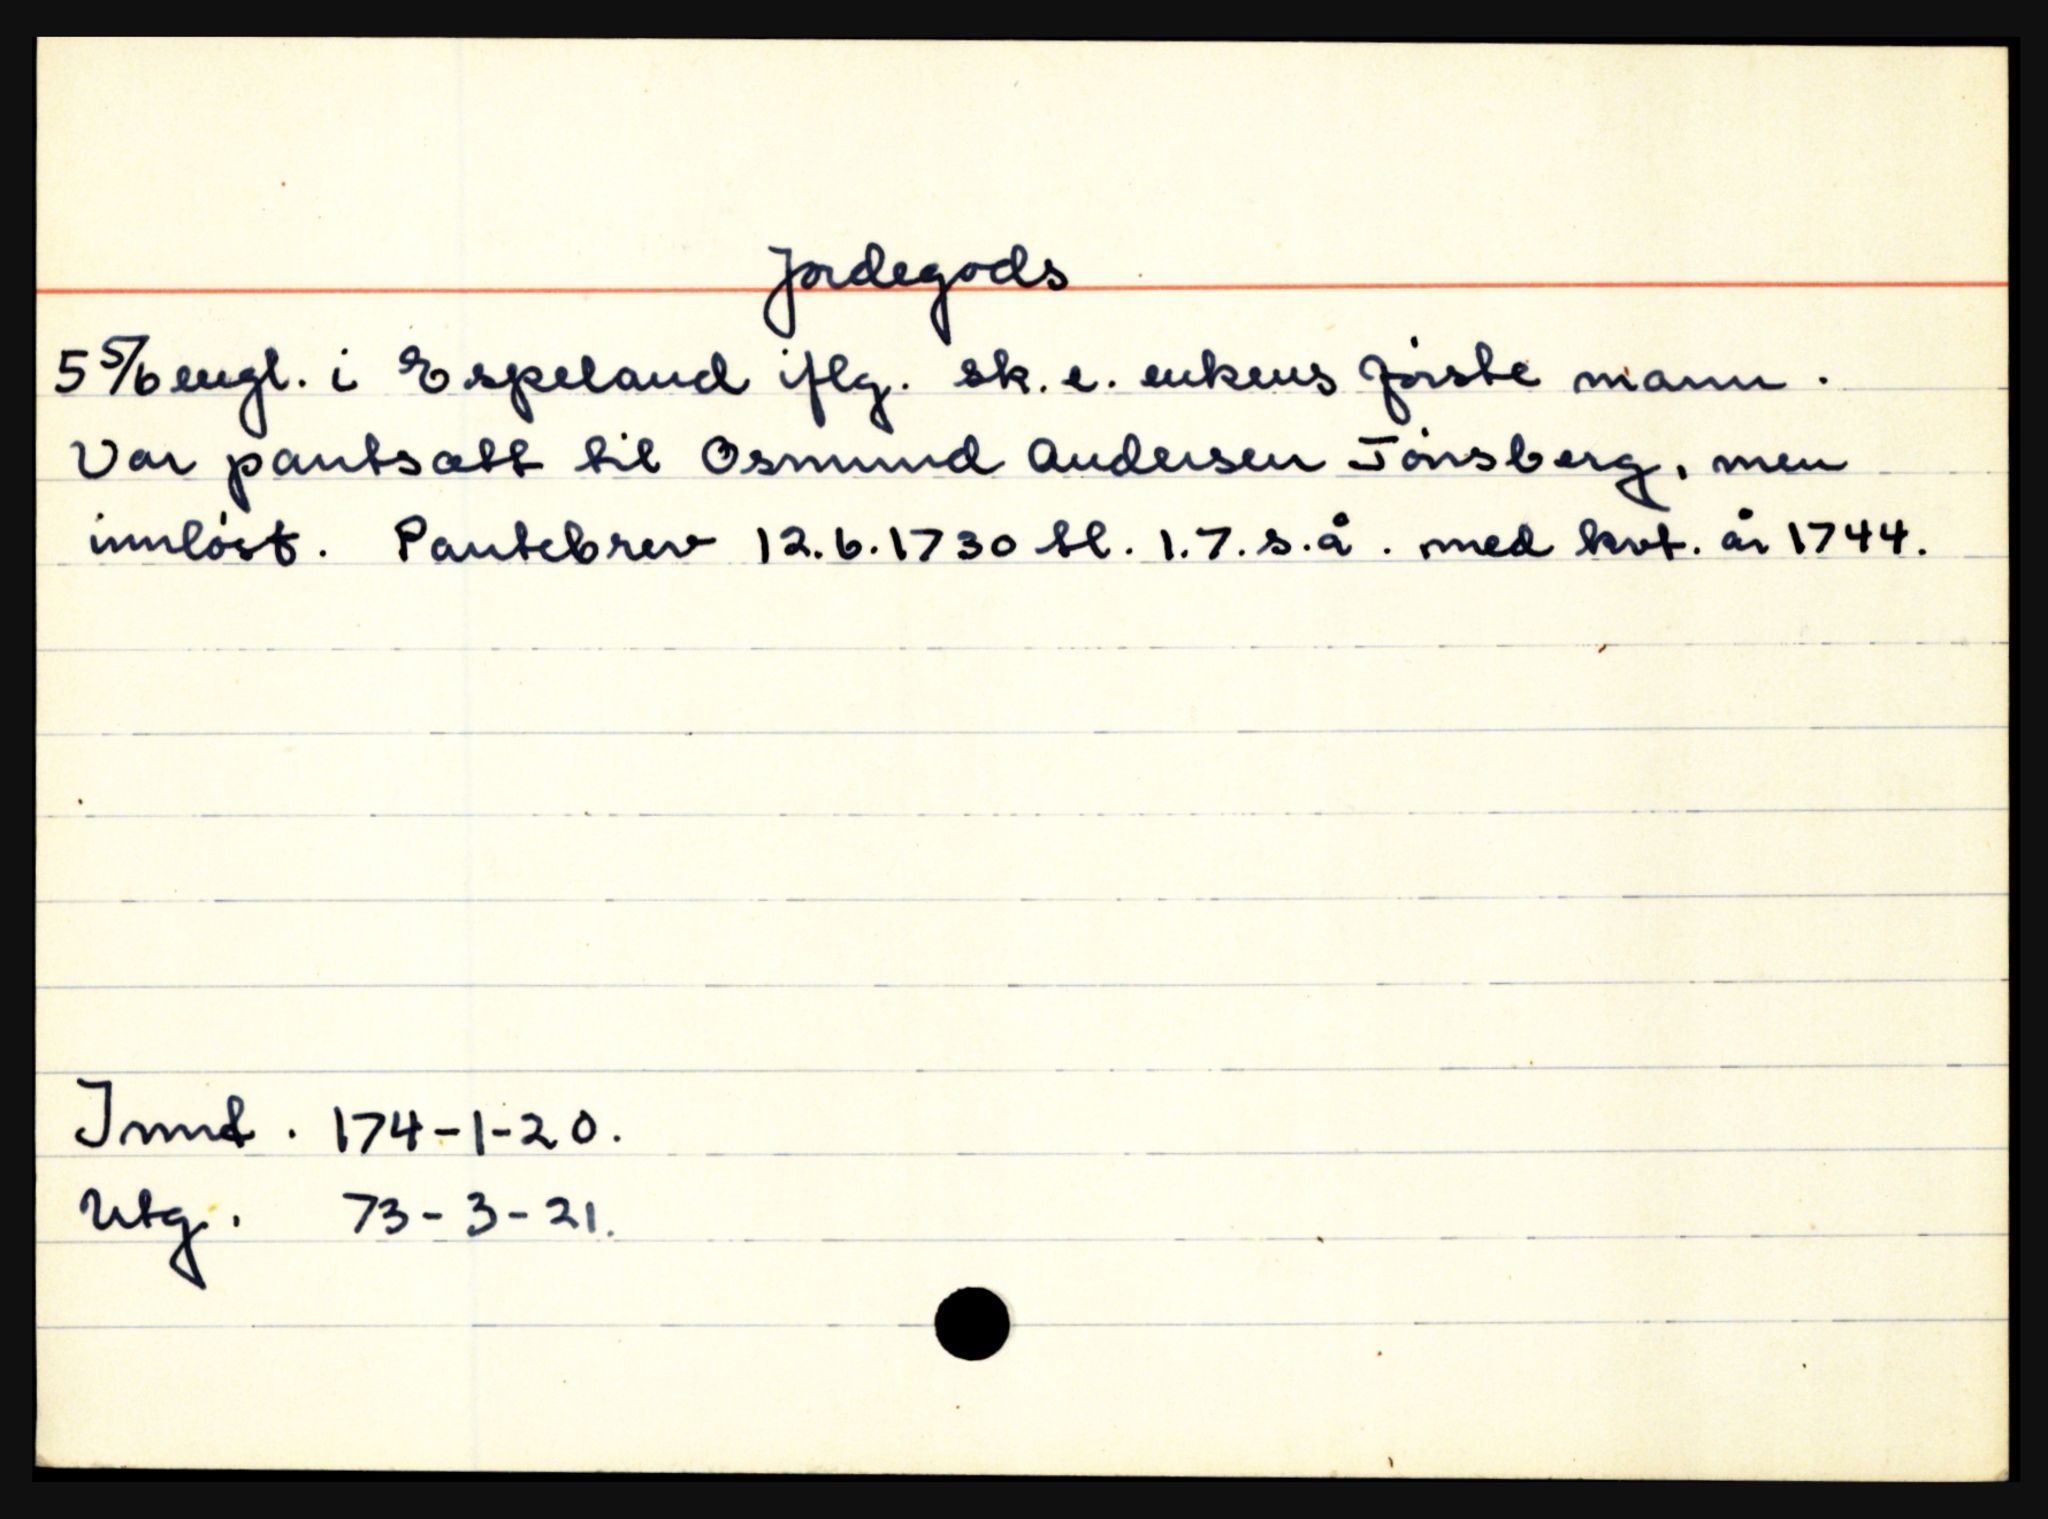 Jordegods
5 5/6 engl. i Espeland iflg. sk. e. enkens første mann.
Var pantsatt til Osmund Andersen Tønsberg, men
innløst. Pantebrev 12.6.1730 tl. 1.7.s.å. med kvt. år 1744.
Innt. 174-1-20.
Utg. 73-3-21.